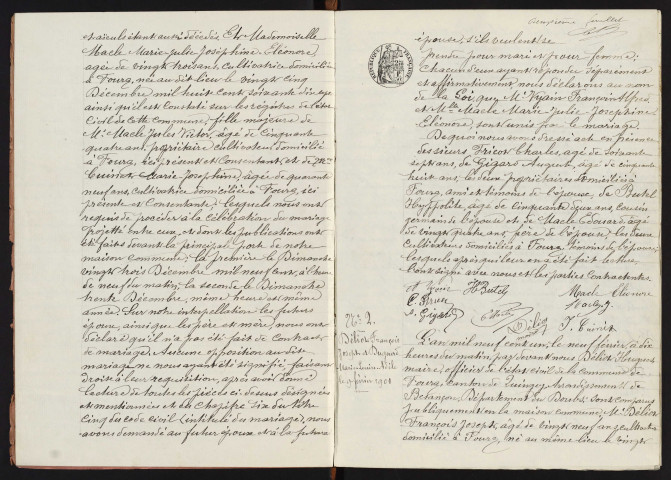 et aïeule étant aussi décédés. Et Mademoiselle
Macle Marie Julie Joséphine Eléonore,
âgée de vingt trois ans, cultivatrice domiciliée
à Fourg, née au dit lieu le vingt cinq
Décembre mil huit cent soixante dix sept
ainsi qu'il est constaté sur les régistres de l'état
civil de cette commune, fille majeure de
Mr Macle Jules Victor, âgé de cinquante
quatre ans, propriétaire cultivateur domicilié
à Fourg, ici présent et consentant et de Mme
Cuinet Marie Joséphine, âgée de quarante
neuf ans, cultivatrice domiciliée à Fourg, ici
présente et consentante; lesquels nous ont
requis de procéder à la célébration du mariage
projetté entre eux, et dont les publications ont
été faites devant la principale porte de notre
maison commune; la première le Dimanche
vingt trois Décembre mil neuf cent, à l'heure
de neuf du matin; la seconde le Dimanche
trente Décembre, même heure et même
année. Sur notre interpellation les futurs
époux, ainsi que les père et mère, nous ont
déclaré qu'il n'a pas été fait de contrat
de mariage. Aucune opposition au dit
mariage ne nous ayant été signifiée, faisant
droit à leur requisition, après avoir donné
lecture de toutes les pièces ci-dessus désignées
et mentionnées et du chapitre six du titre
cinq du code civil (intitulé du mariage), nous
avons demandé au futur époux et à la future
épouse, s'ils veulent se
prendre pour mari et pour femme;
chacun d'eux ayant répondu séparément
et affirmativement, nous déclarons au nom
de la Loi que Mr François Alfred
et Mlle Macle Marie Julie Joséphine
Eléonore, sont unis par le mariage.
De quoi nous avons dressé acte en présence
des sieurs Tricot Charles, âgé de soixante
sept ans, de Gigard August, âgé de cinquante
huit ans, les deux propriétaires domiciliés à
Fourg, amis et témoins de l'épouse, de Butel
Hyppolite, âgé de cinquante deux ans, cousin
germain de l'épouse et de Macle Edouard âgé
de vingt quatre ans, frère de l'épouse, les deux
cultivateurs domiciliés à Fourg, témoins de l'épouse;
lesquels après qu'il leur en a été fait lecture,
l'ont signé avec nous et les parties contractantes.
H Butel
Macle Eléonore
J. Cuinet
No 2.
Béliot François
Joseph et
9 février 1901
L'an mil neuf cent un, le neuf février, à dix
heures du matin, par devant nous Béliot
maire, officier de l'état civil de la commune de
Fourg, canton de Quingey, Arrondissement de
Besançon, Département du Doubs, sont comparus
publiquement en la maison commune; Mr Béliot
François Joseph, âgé de vingt neuf ans, cultivateur
domicilié à Fourg, né au même lieu le vingt